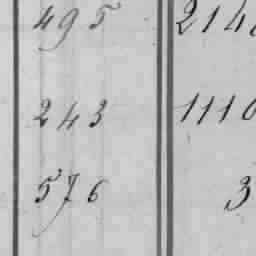 495 214
243 1110
576 3